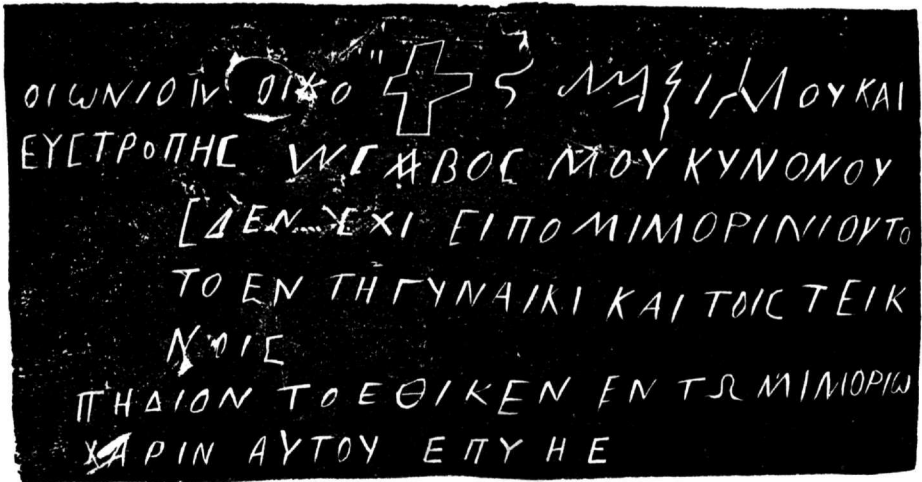 ΟΙΩΝΙΟΝ ΟΙΚΟ ΟΥ ΚΑΙ
ΕΥΣΤΡΟΠΗΣ ΒΟΣ ΜΟΥ ΚΥΝΟΝΟΥ
ΔΕΝ ΕΧΙ ΕΙΠΟ ΜΙΜΟΡΙΝΙΟΥΤΟ
ΤΟ ΕΝ ΤΗ ΓΥΝΑΙΚΙ ΚΑΙ ΤΟΙΣ ΤΕΙΚ
ΝΟΙΣ
ΠΗΔΙΟΝ ΤΟ ΕΘΙΚΕΝ ΕΝ ΤΩ ΜΙΜΟΡΙΩ
ΧΑΡΙΝ ΑΥΤΟΥ ΕΠΥΗΕ